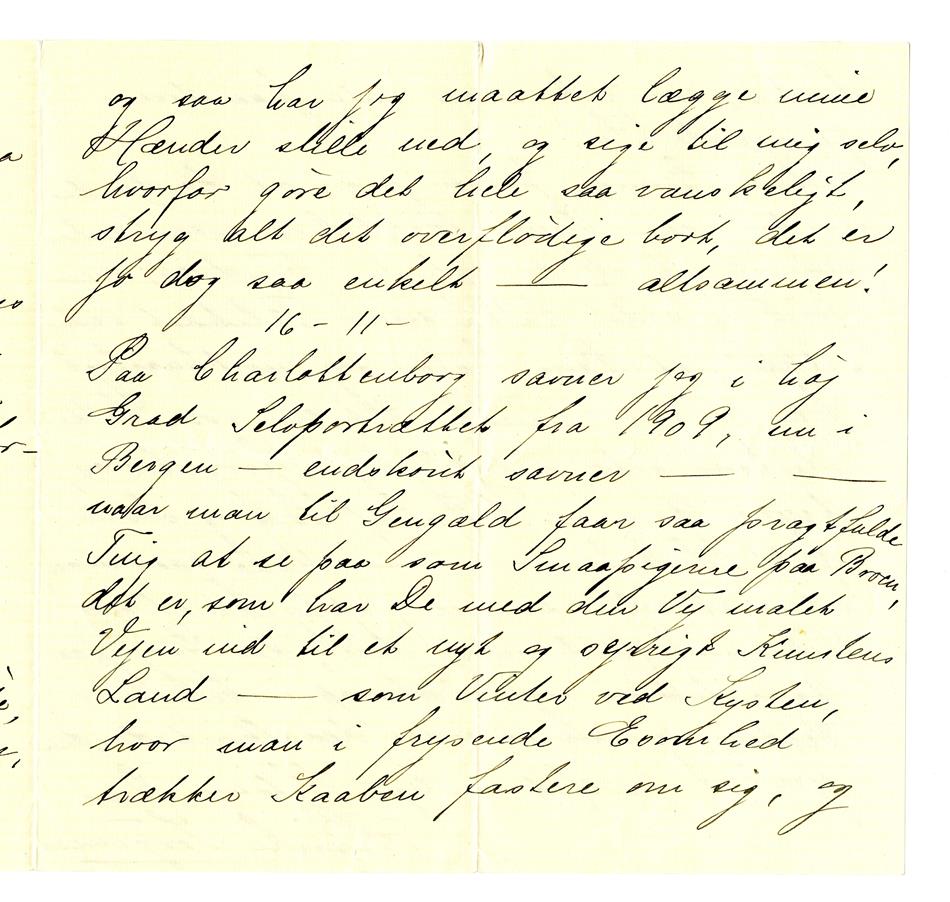 og saa har jeg maattet lægge mine
Hænder stille ned, og sige til mig selv,
hvorfor göre det hele saa vanskeligt,
stryg alt det overflödige bort, det er
jo dog saa enkelt — altsammen!
16 – 11 –
Paa Charlottenborg savner jeg i höj
Grad Selvportrættet fra 1909, nu i
Bergen — endskönt savner — —
naar man til Gengæld faar saa pragtfulde
Ting at se paa som Smaapigerne paa Broen,
det er, som har De med den Vej malet
Vejen ind til et nyt og Kunstens
Land — som Vinter ved Kysten,
hvor man i frysende Eensomhed
trækker Kaaben fastere om sig, og